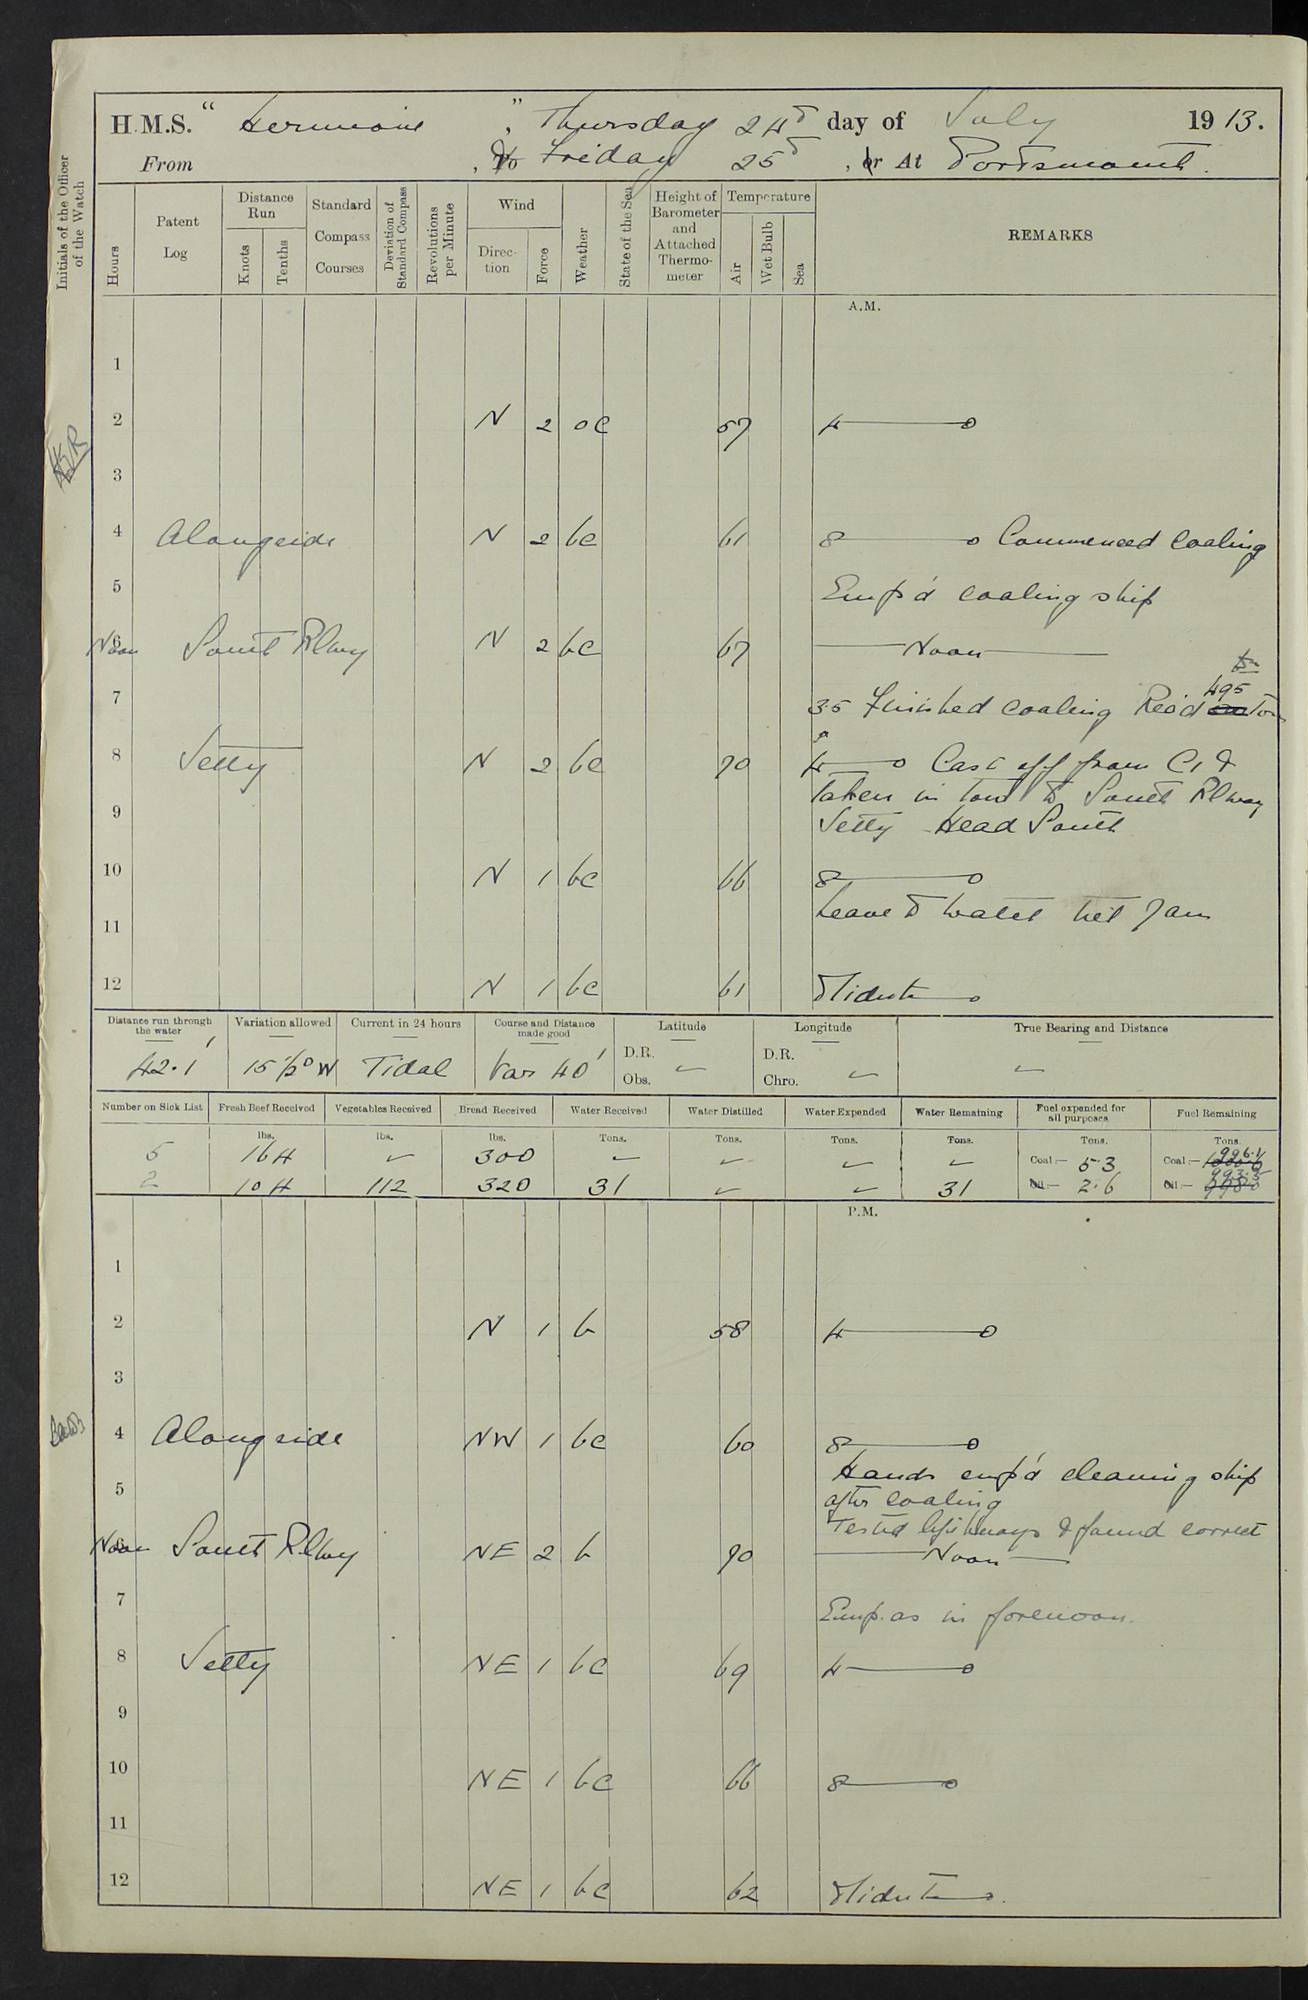 H.M.S. "Hermione", Thursday 24th day of July 1913.
From , & Friday 25th , or At Portsmouth.
Initials of the Officer of the Watch
Hours
Patent Log
Distance Run
Knots
Tenths
Standard Compass Courses
Deviation of Standard Compass
Revolutions per Minute
Wind
Direction
Force
Weather
State of the Sea
Height of Barometer and Attached Thermometer
Temperature
Air
Wet Bulb
Sea
REMARKS
A.M.
1
2 N 2 oc 57 4
3
4 Alongside N 2 bc 61 8 Commenced Coaling
5 Emp'd coaling ship
6 Noon South Rlwy N 2 bc 67 Noon
7 3.5 Finished coaling Rec'd 495 Tons
8 Jetty N 2 bc 70 4 Cast off from C1 &
taken in tow to South Rlway
9 Jetty Head South
10 N 1 bc 66 8
11 Leave to Watch till 7 am
12 N 1 bc 61 Midnt
Distance run through the water
Variation allowed
Current in 24 hours
Course and Distance made good
Latitude
Longitude
True Bearing and Distance
42.1' 15½° W Tidal Var 40'
D.R.
Obs.
D.R.
Chro.
Number on Sick List
Fresh Beef Received
Vegetables Received
Bread Received
Water Received
Water Distilled
Water Expended
Water Remaining
Fuel expended for all purposes
Fuel Remaining
lbs. lbs. lbs. Tons. Tons. Tons. Tons. Tons. Tons.
5 164 300 Coal:— 5.3 Coal:— 996.1
2 104 112 320 31 31 Oil:— 2.6 Oil:— 993.5
P.M.
1
2 N 1 b 58 4
3
4 Alongside NW 1 bc 60 8
Hands emp'd cleaning ship
5 after coaling
Tested lifebuoys & found correct
Noon South Rlwy NE 2 b 70 Noon
7 Emp. as in forenoon.
8 Jetty NE 1 bc 69 4
9
10 NE 1 bc 66 8
11
12 NE 1 bc 62 Midnt